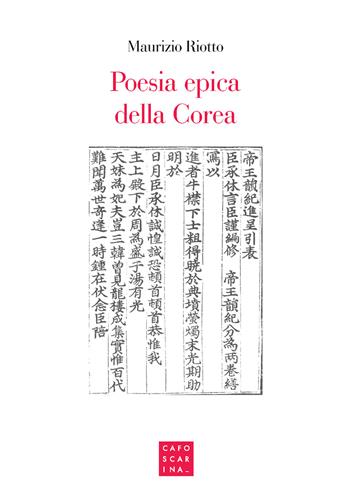 Maurizio Riotto
Poesia epica
della Corea
帝王韻紀進呈引表
臣承休言臣謹編修 帝王韻紀分為兩卷繕
寫以
進者牛襟下士粗得曉於典墳螢燭末光期助
明於
日月臣承休誠惶誠恐頓首頓首恭惟我
主上殿下於周為盛于湯有光
天妹為妃夫豈三韓曾見龍樓成集實惟百代
難聞萬世奇逢一時鍾在伏念臣陪
CAFO
SCAR
INA_